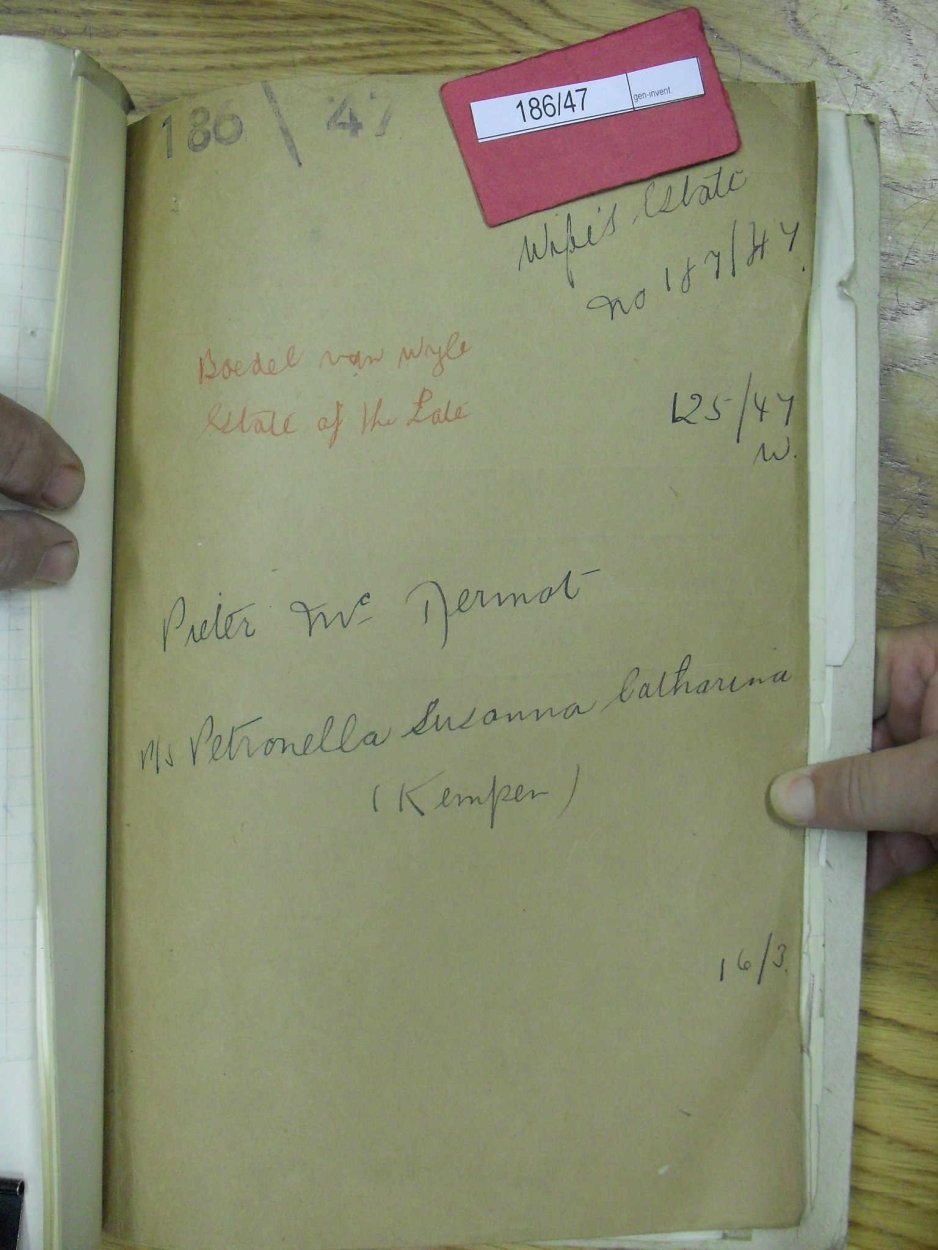 186 \ 47
186/47
gen-invent.
Wife's Estate
No 187/47.
Boedel van Wyle
Estate of the Late
125/47
W.
Pieter Mc Dermot
n/s Petronella Susanna Catharina
(Kempen)
16/3.